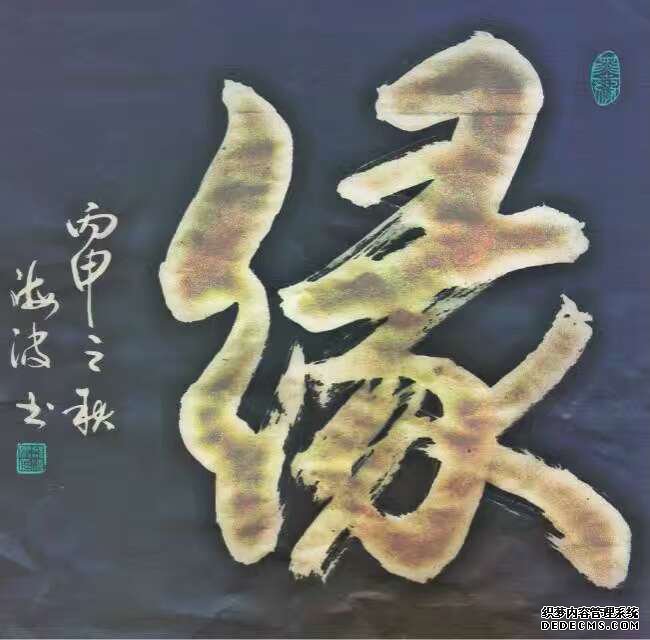 缘
丙申之秋
海波书
织梦内容管理系统
DEDECMS.COM